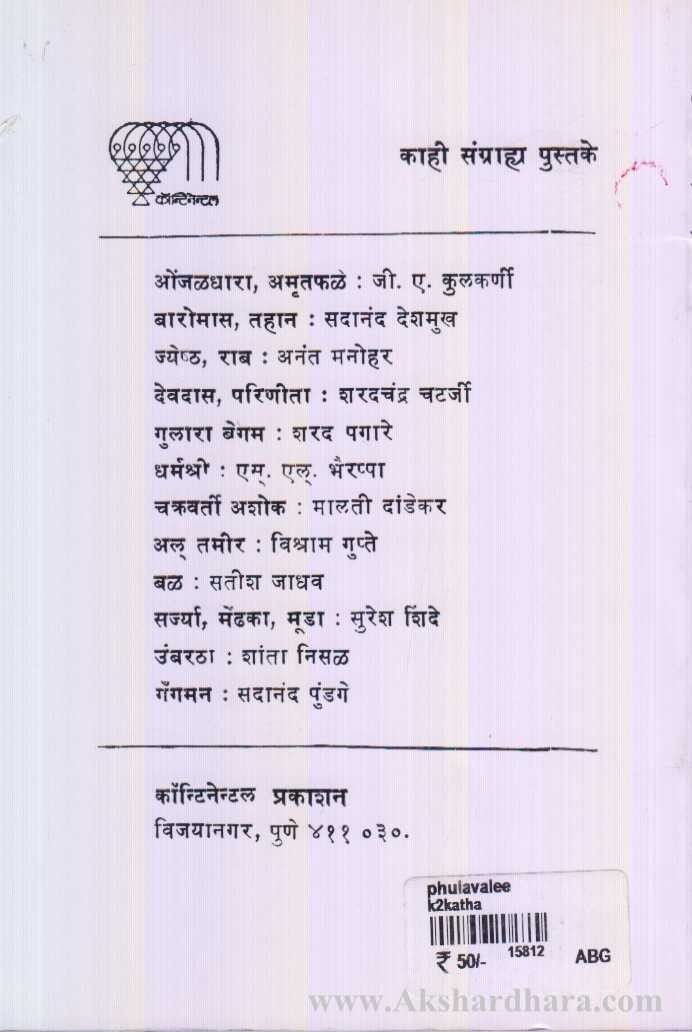 कॉन्टिनेन्टल
काही संग्राह्य पुस्तके
ओंजळधारा, अमृतफळे : जी. ए. कुलकर्णी
बारोमास, तहान : सदानंद देशमुख
ज्येष्ठ, राब : अनंत मनोहर
देवदास, परिणीता : शरदचंद्र चटर्जी
गुलारा बेगम : शरद पगारे
धर्मश्री : एम्. एल्. भैरप्पा
चक्रवर्ती अशोक : मालती दांडेकर
अल् तमीर : विश्राम गुप्ते
बळ : सतीश जाधव
सर्ज्या, मेंढका, मूडा : सुरेश शिंदे
उंबरठा : शांता निसळ
गँगमन : सदानंद पुंडगे
कॉन्टिनेन्टल प्रकाशन
विजयानगर, पुणे ४११ ०३०.
phulavalee
k2katha
₹ 50/- 15812 ABG
www.Akshardhara.com